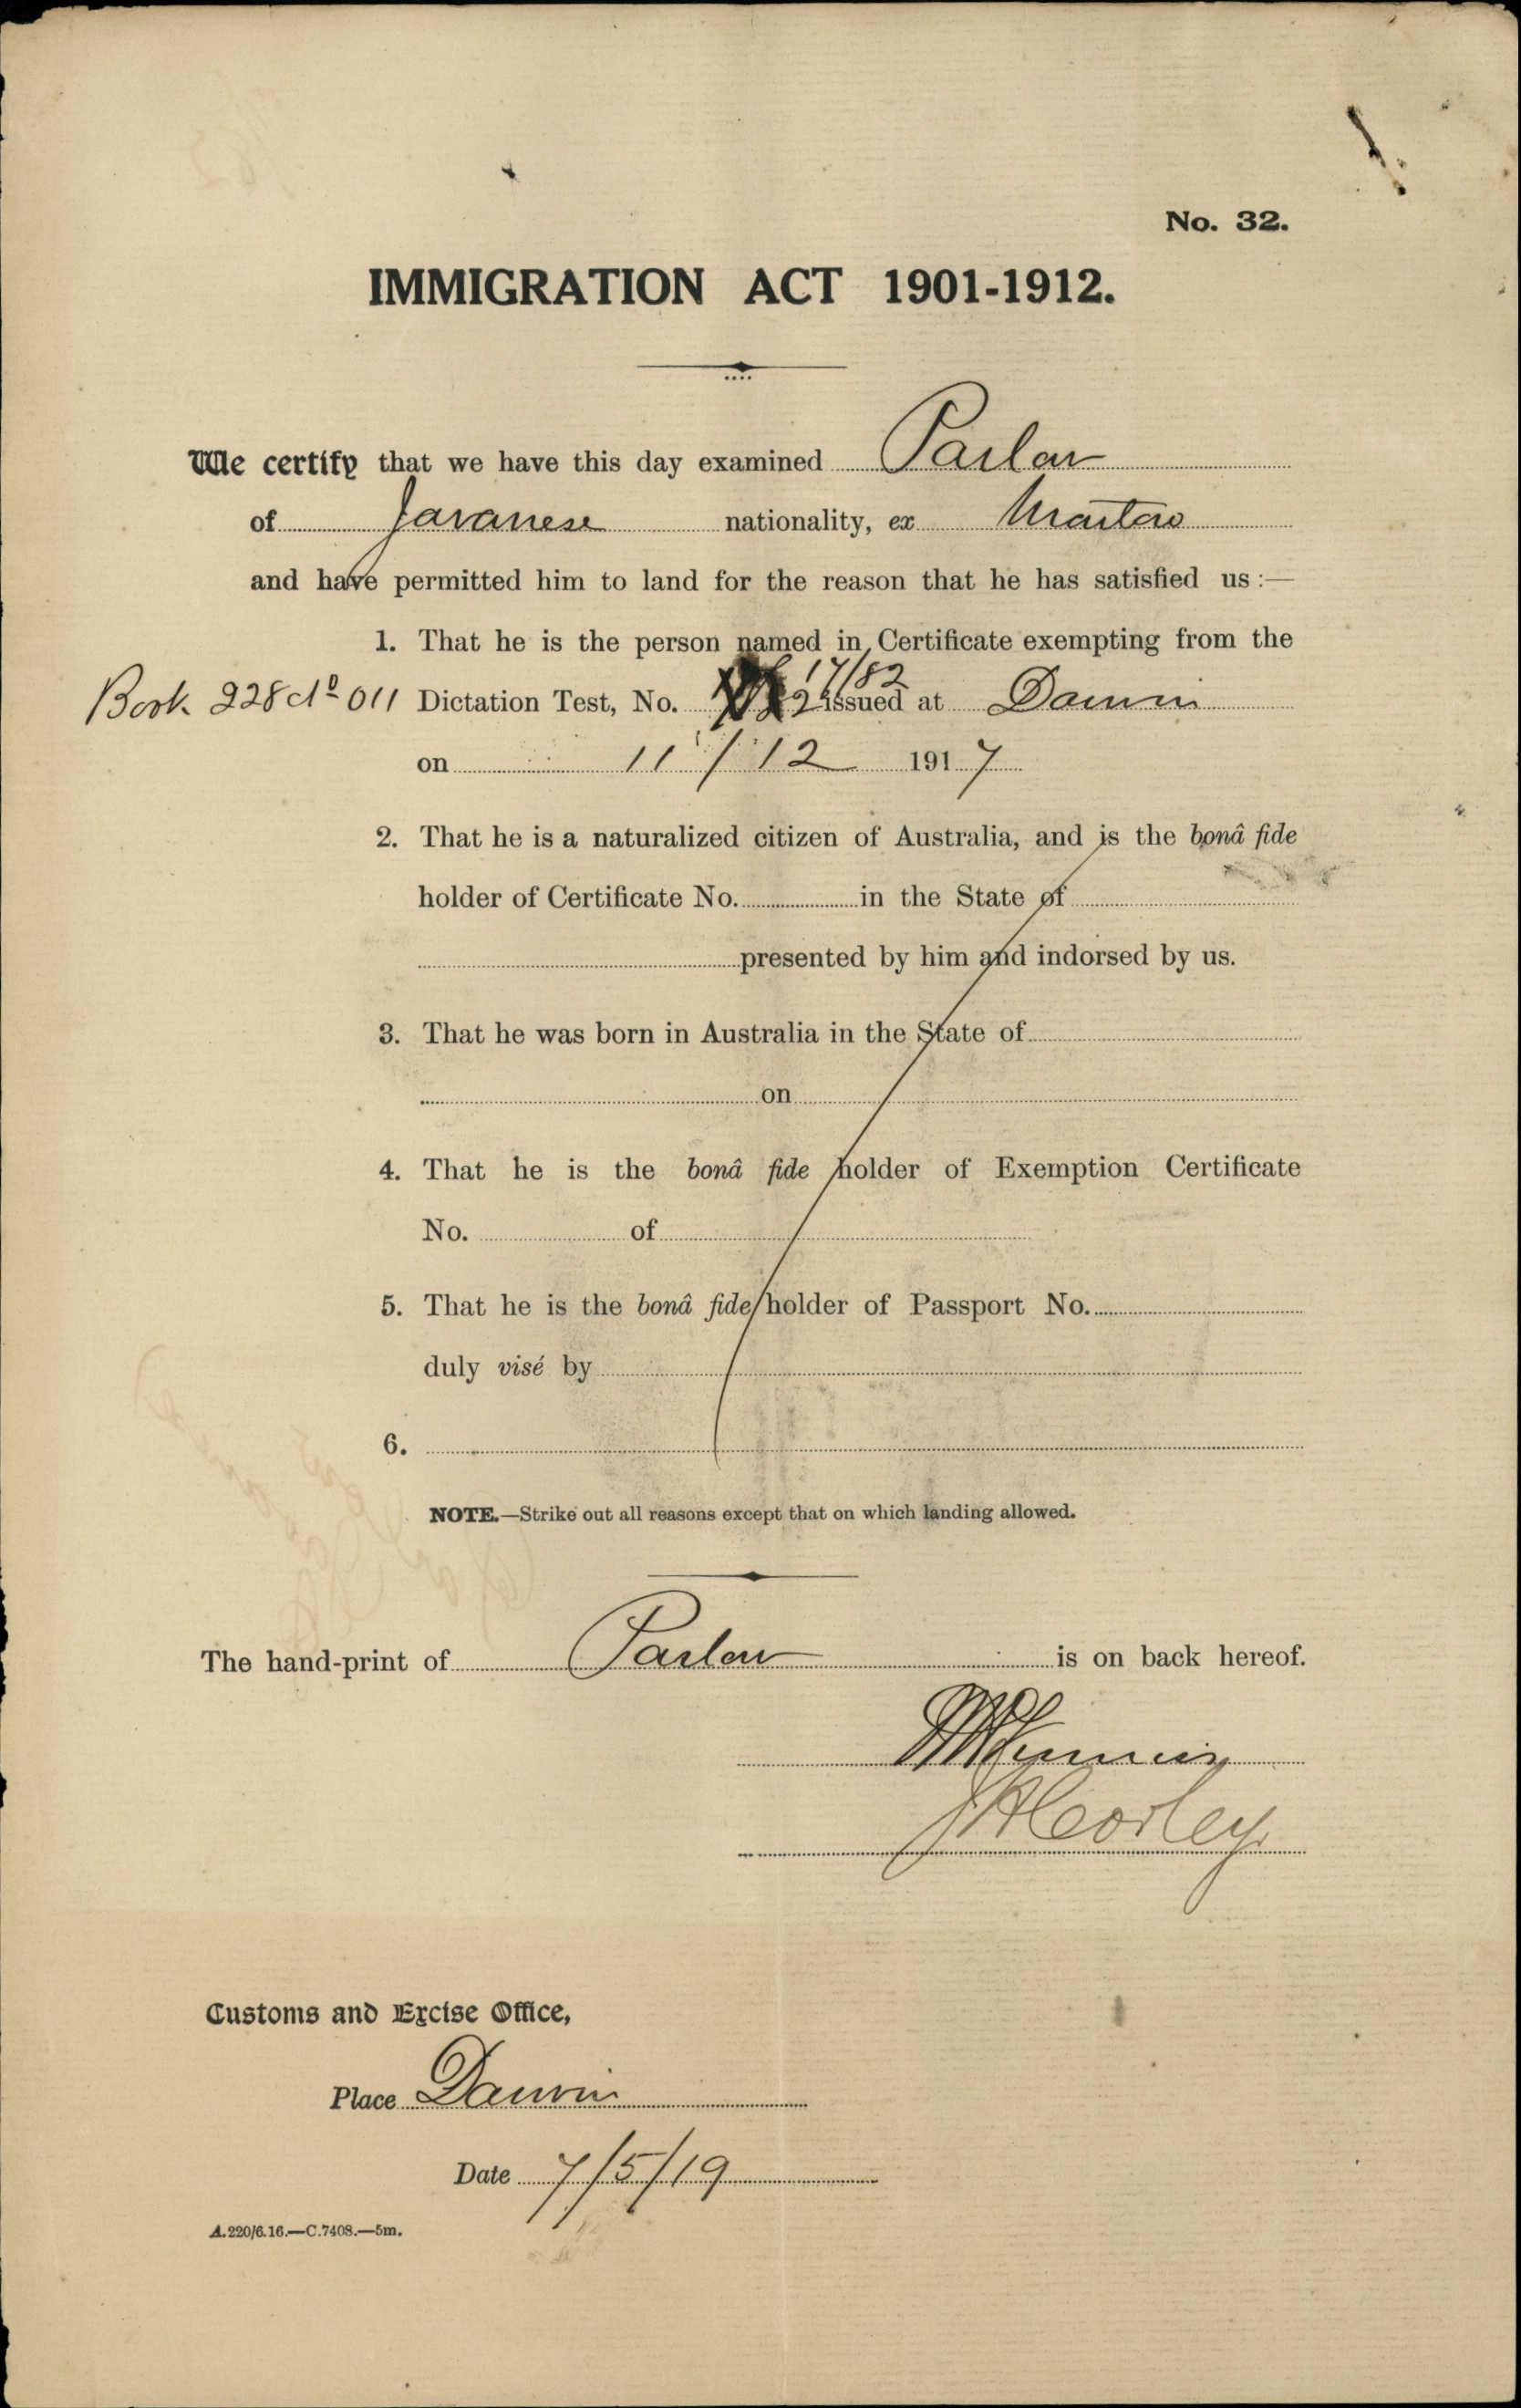 No. 32.
IMMIGRATION ACT 1901-1912.
We certify that we have this day examined Parlan
of Javanese nationality, ex Mataro
and have permitted him to land for the reason that he has satisfied us :—
1. That he is the person named in Certificate exempting from the
17/82
Book 228 No 011 Dictation Test, No. issued at Darwin
on 11/12 1917
2. That he is a naturalized citizen of Australia, and is the bonâ fide
holder of Certificate No. in the State of
presented by him and indorsed by us.
3. That he was born in Australia in the State of
on
4. That he is the bonâ fide holder of Exemption Certificate
No. of
5. That he is the bonâ fide holder of Passport No.
duly visé by
6.
NOTE.—Strike out all reasons except that on which landing allowed.
The hand-print of Parlan is on back hereof.
Corley
Customs and Excise Office,
Place Darwin
Date 7/5/19
A.220/6.16.—C.7408.—5m.